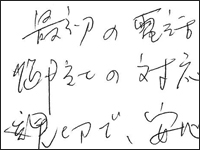 最初の電話
の対応
親切で、安心